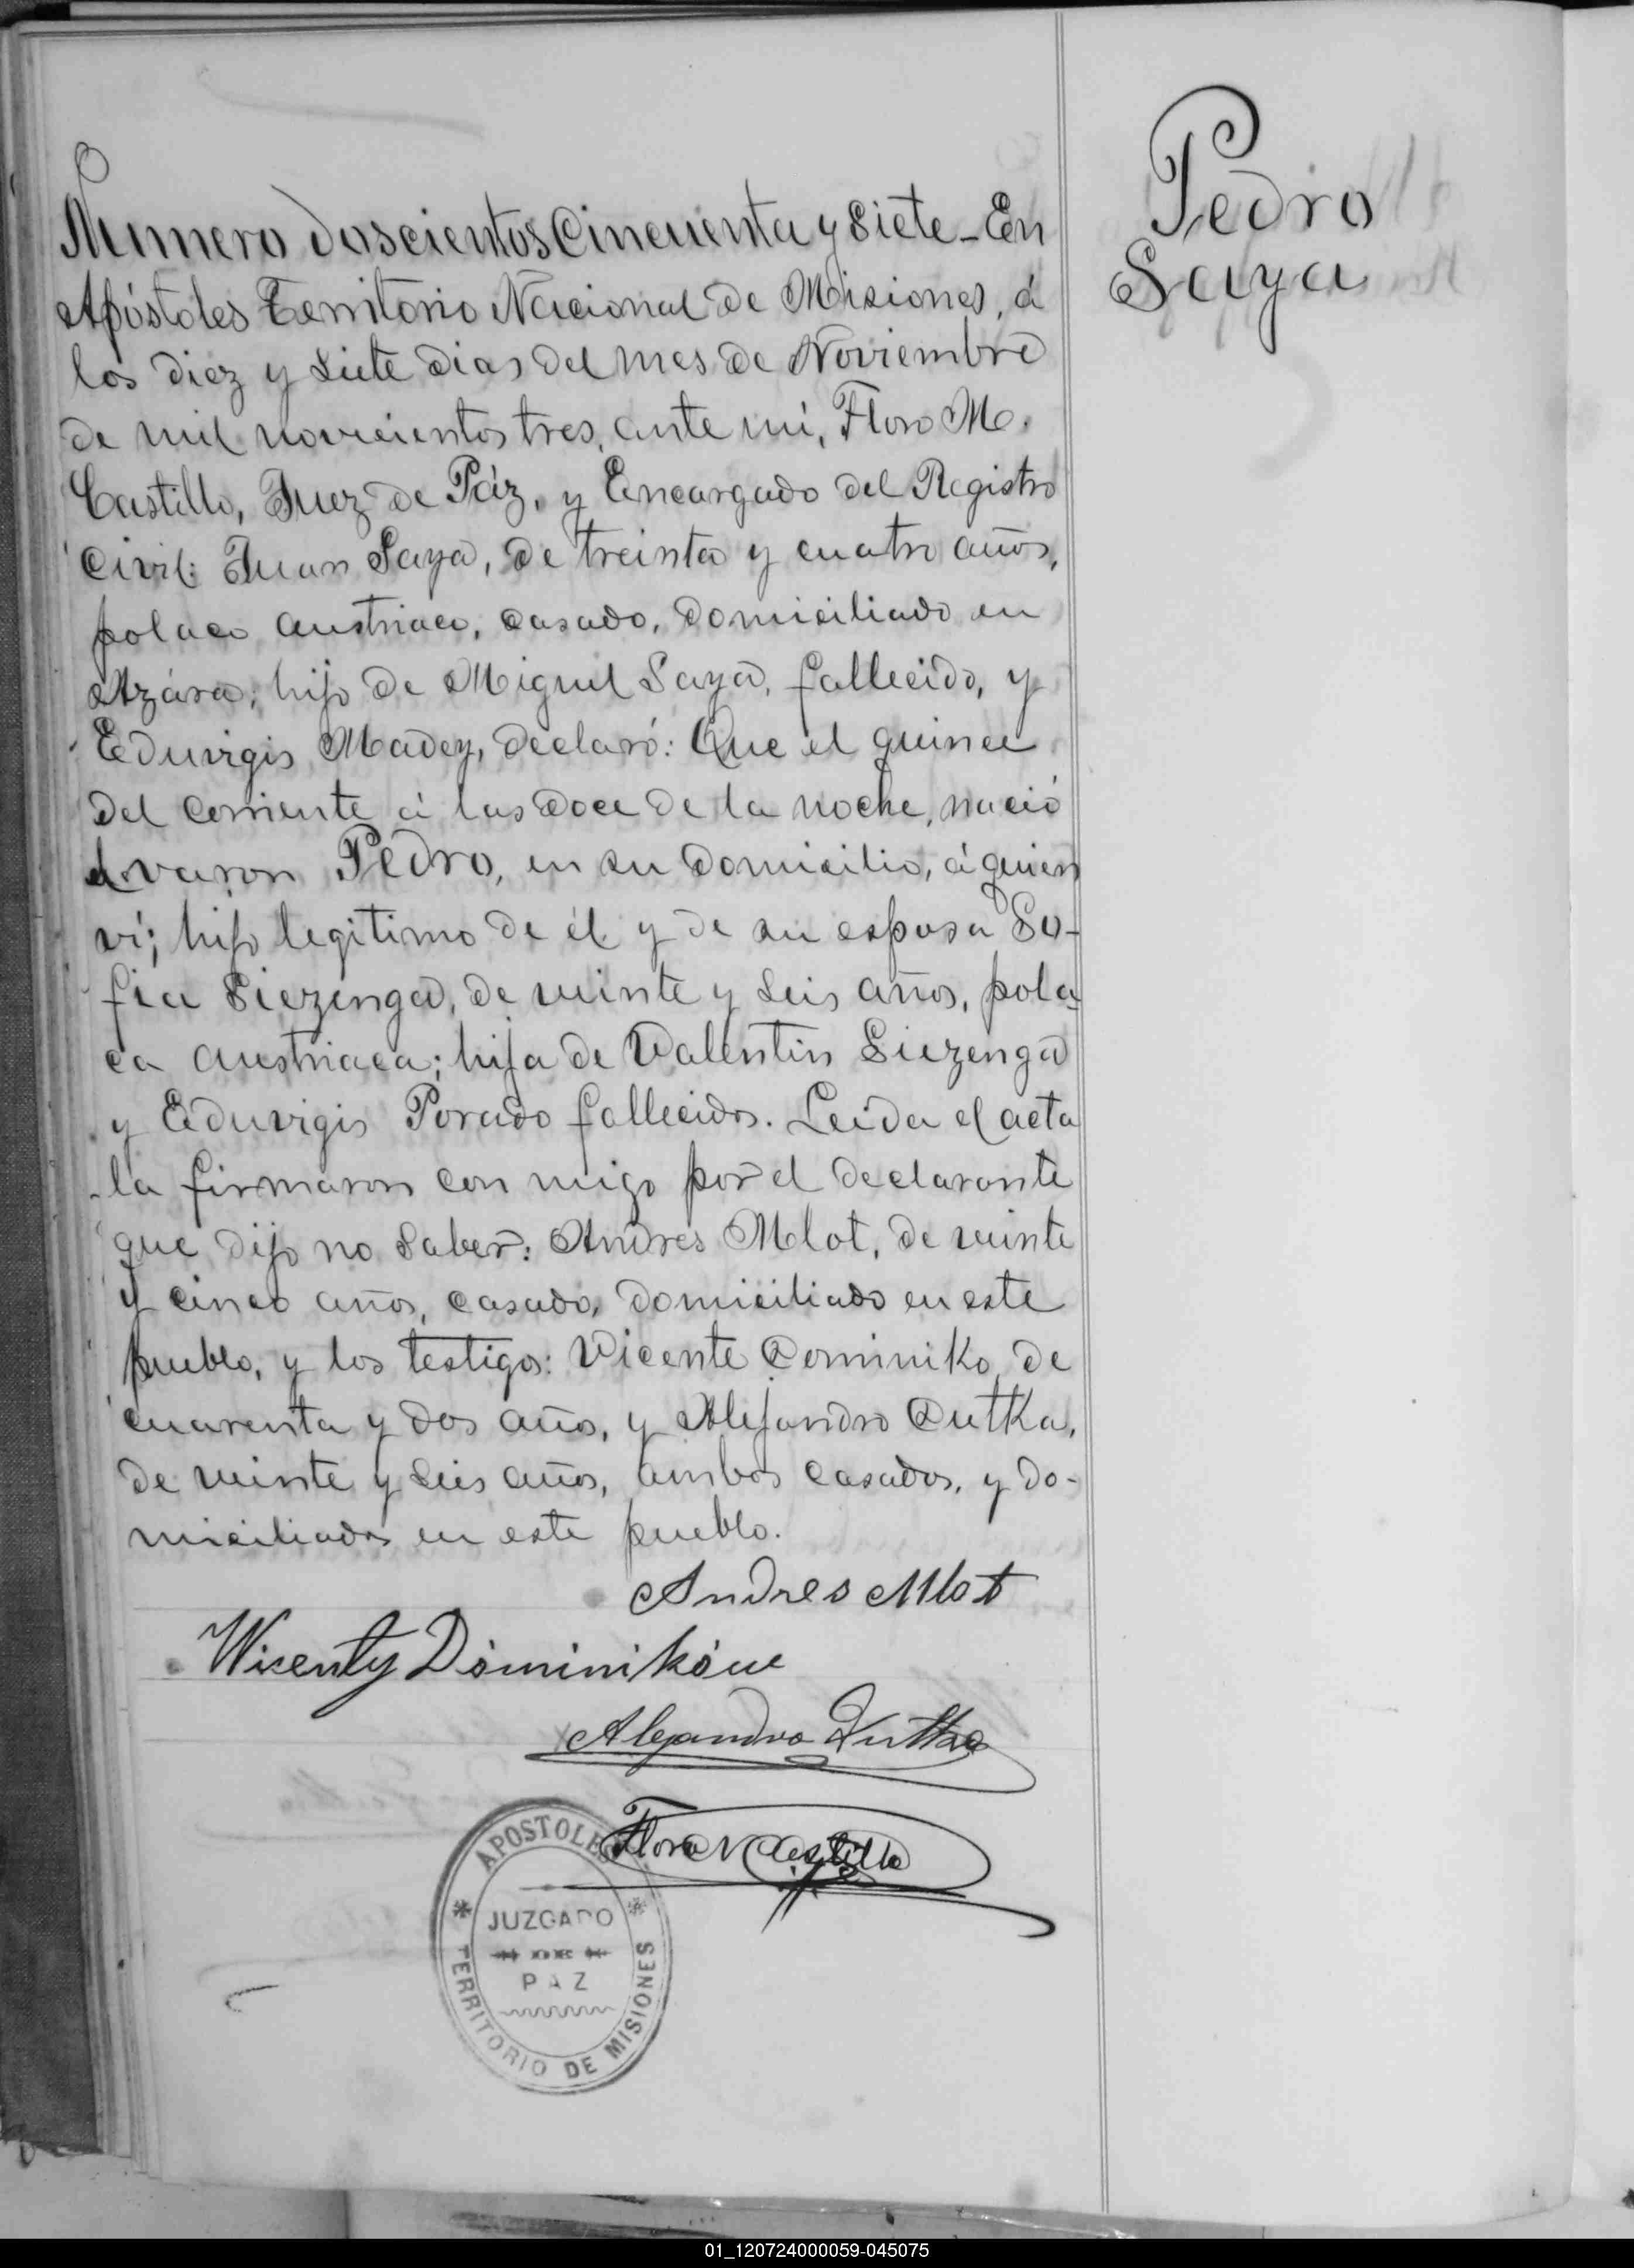 Pedro
Saya
Numero doscientos Cincuenta y Siete - En
Apóstoles Territorio Nacional de Misiones, á
los diez y siete dias del mes de Noviembre
de mil novecientos tres, ante mi, Floro M.
Castillo, Juez de Páz, y Encargado del Registro
Civil: Juan Saya, de treinta y cuatro años,
polaco austriaco, casado, domiciliado en
Azára; hijo de Miguel Saya, fallecido, y
Eduvigis Madey, declaró: Que el quince
del corriente á las doce de la noche, nació
el varon Pedro, en su domicilio, á quien
ví; hijo legitimo de él y de su esposa So-
fia Siezenga, de veinte y seis años, pola-
ca austriaca; hija de Valentin Siezenga
y Eduvigis Porado fallecidos. Leida el acta
la firmaron con migo por el declarante
que dijo no saber: Andres Mlot, de veinte
y cinco años, casado, domiciliado en este
pueblo, y los testigos: Vicente Dominiko, de
cuarenta y dos años, y Alejandro Dutka,
de veinte y seis años, ambos casados, y do-
miciliados en este pueblo.
Andres Mlot
Wicenty Dominików
Alejandro Dutka
Floro M Castillo
APOSTOLES
JUZGADO
DE
PAZ
TERRITORIO DE MISIONES
01_120724000059-045075